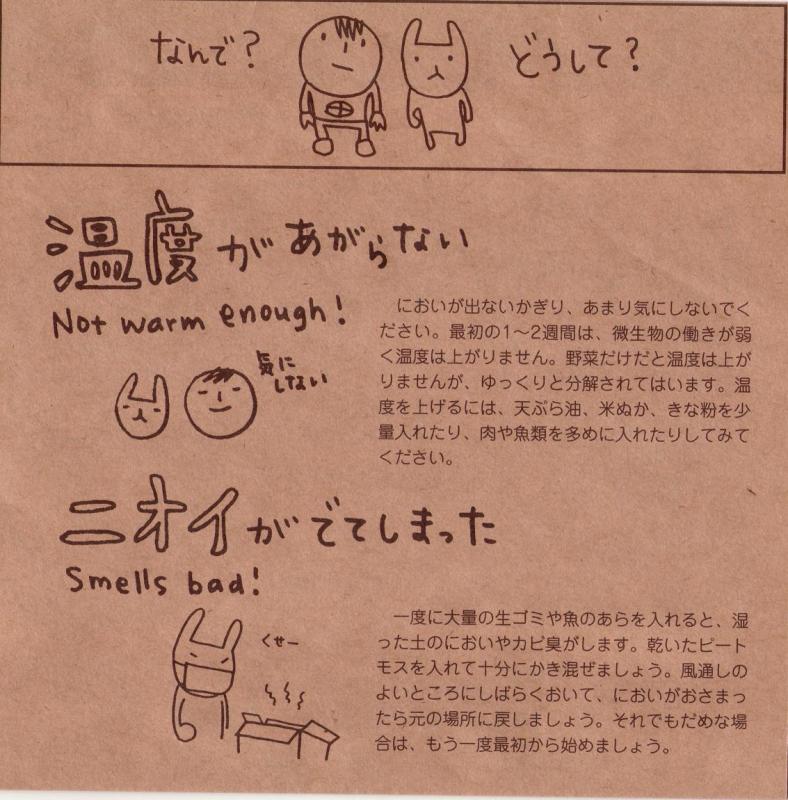 なんで？
どうして？
温度があがらない
Not warm enough!
気に
しない
においが出ないかぎり、あまり気にしないでく
ださい。最初の1〜2週間は、微生物の働きが弱
く温度は上がりません。野菜だけだと温度は上が
りませんが、ゆっくりと分解されてはいます。温
度を上げるには、天ぷら油、米ぬか、きな粉を少
量入れたり、肉や魚類を多めに入れたりしてみて
ください。
ニオイがでてしまった
Smells bad!
くせー
一度に大量の生ゴミや魚のあらを入れると、湿
った土のにおいやカビ臭がします。乾いたピート
モスを入れて十分にかき混ぜましょう。風通しの
よいところにしばらくおいて、においがおさまっ
たら元の場所に戻しましょう。それでもだめな場
合は、もう一度最初から始めましょう。